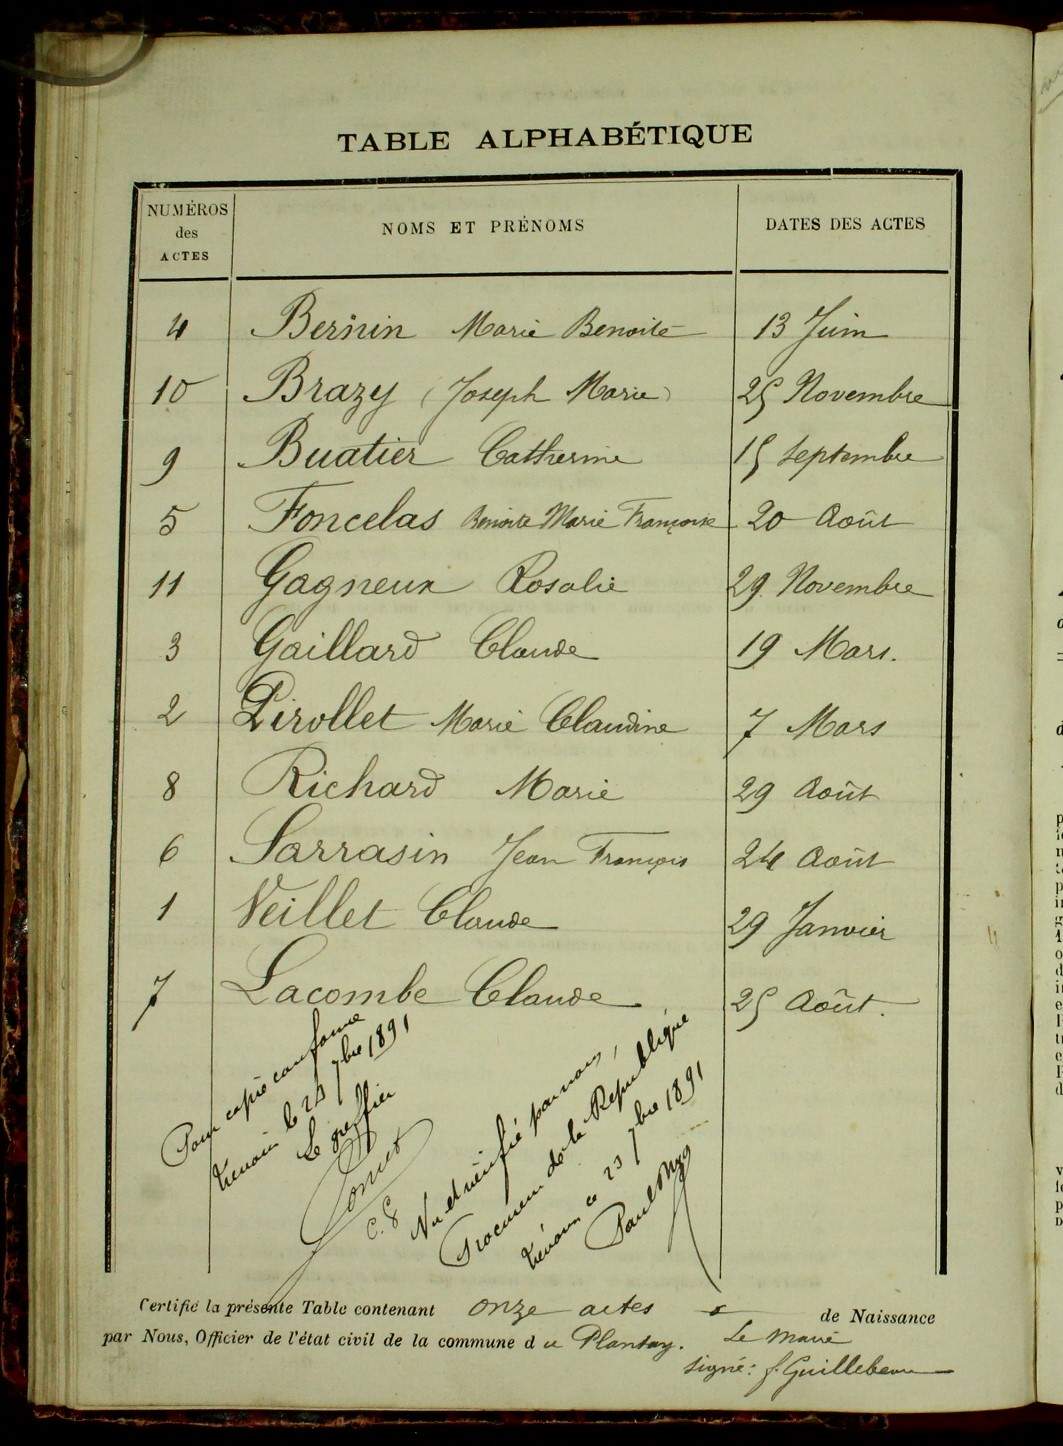 TABLE ALPHABÉTIQUE
NUMÉROS des ACTES NOMS ET PRÉNOMS DATES DES ACTES
4 Bernin Marie Benoite 13 Juin
10 Brazy (Joseph Marie) 25 Novembre
9 Buatier Catherine 15 septembre
5 Foncelas Benoite Marie Françoise 20 Août
11 Gagneux Rosalie 29 Novembre
3 Gaillard Claude 19 Mars.
2 Pirollet Marie Claudine 7 Mars
8 Richard Marie 29 Août
6 Sarrasin Jean François 24 Août
1 Veillet Claude 29 Janvier
7 Lacombe Claude 25 Août.
Pour copie conforme
Trévoux le 23 7bre 1891
Le greffier
C. G
Vu et vérifié par nous,
Procureur de la République
Trévoux ce 23 7bre 1891
Paul
Certifié la présente Table contenant onze actes de Naissance
par Nous, Officier de l'état civil de la commune du Plantay.
Le maire
signé: f. Guillebeau